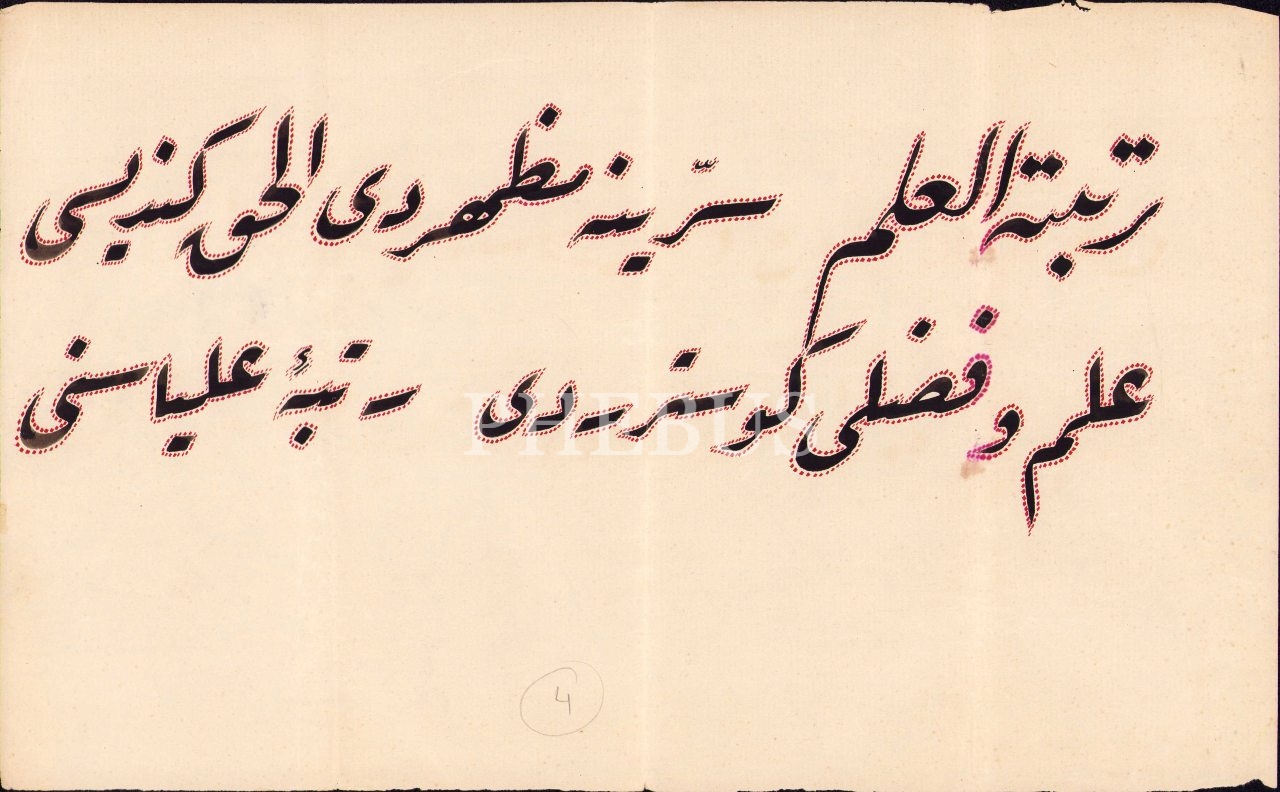 رتبة العلم سرّینه مظهردی الحق کندیسی
علم و فضلی کوسترردی رتبۀ علیاسنی
PHEBUS
4